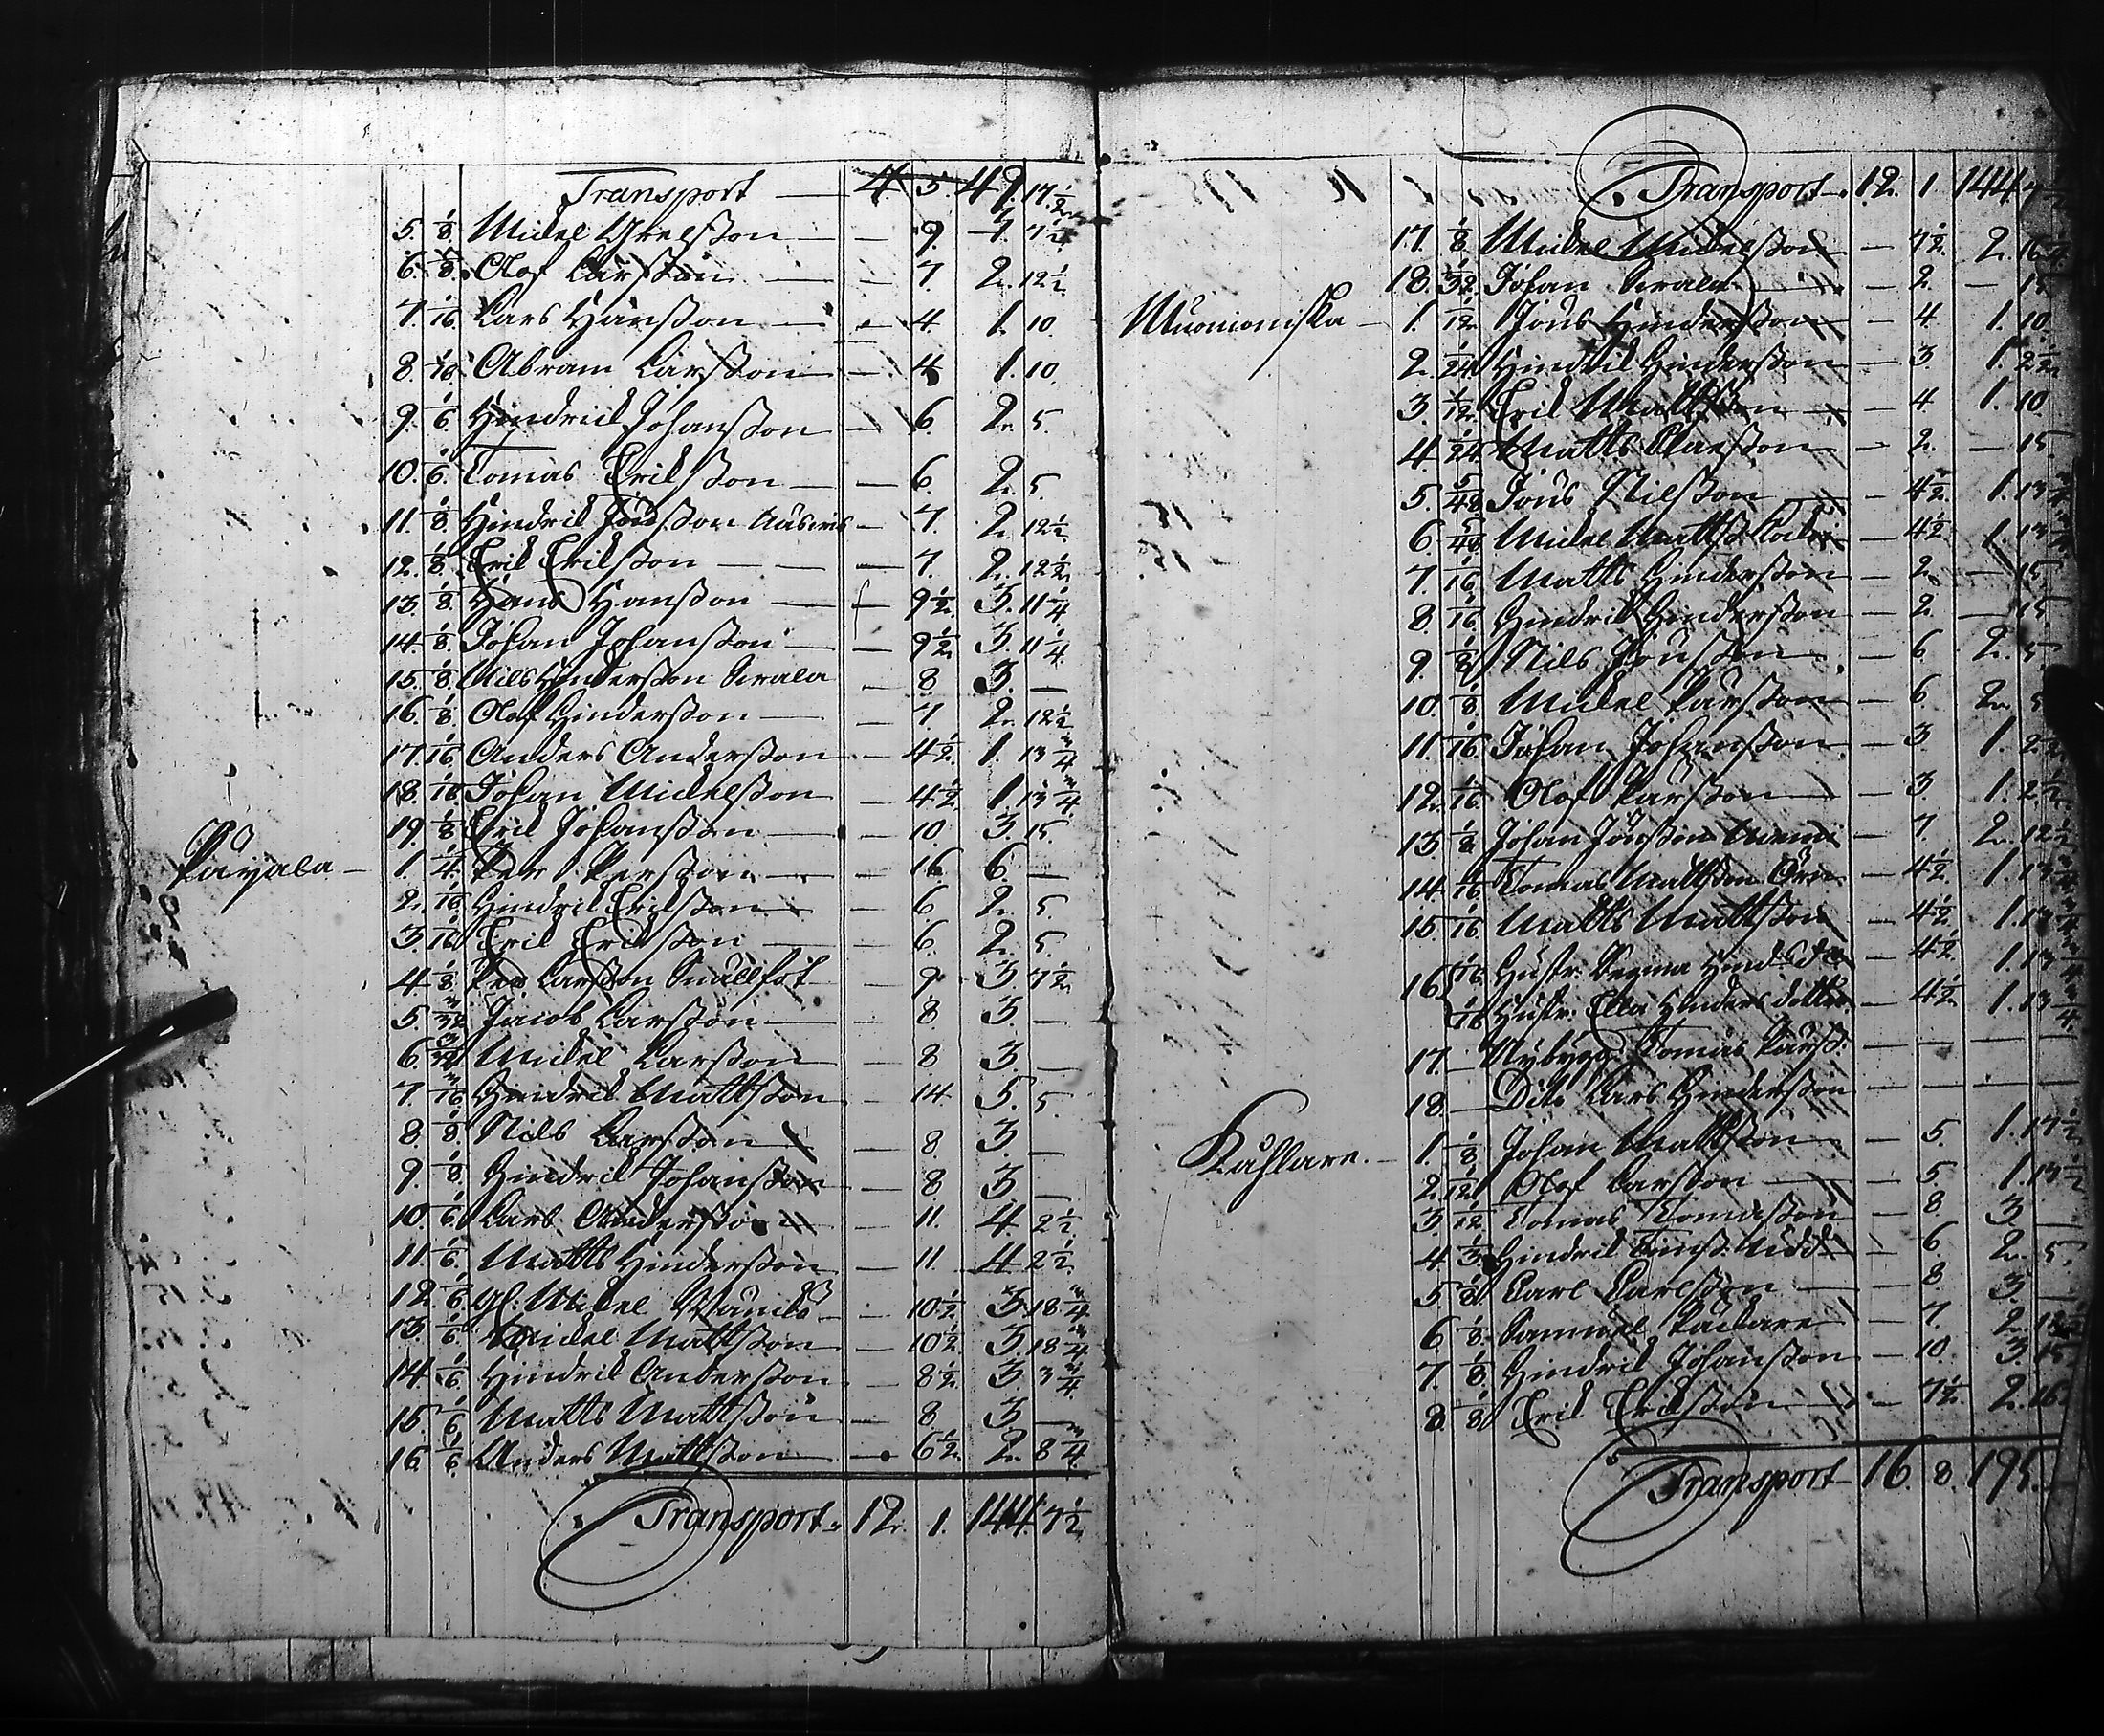 Transport — 4. 5. 49. 17 1/2
5. 1/8. Mickel Grelsson — — 9. 3. 7 1/2
6. 1/8. Olof Larsson — — 7. 2. 12 1/2
7. 1/16. Lars Hansson — — 4. 1. 10.
8. 1/16. Abram Larsson — — 4. 1. 10.
9. 1/6. Hindrich Johansson — 6. 2. 5.
10. 1/6. Tomas Erikson — — 6. 2. 5.
11. 1/8. Hindrik Jönsson — 7. 2. 12 1/2
12. 1/8. Erik Erikson — — 7. 2. 12 1/2
13. 1/8. Hans Hansson — — 9 1/2. 3. 11 1/4
14. 1/8. Johan Johansson — — 9 1/2. 3. 11 1/4
15. 1/8. Nils Hindersson — 8 3. —
16. 1/8. Olof Hindersson — — 7 2. 12 1/2
17. 1/16. Anders Andersson — 4 1/2. 1. 13 3/4
18. 1/16. Johan Mickelsson — 4 1/2. 1. 13 3/4
19. 1/8. Erik Johansson — — 10. 3. 15.
Pajala — 1. 1/4. Per Persson — — 16 6. —
2. 1/16. Hindrik Erikson — 6. 2. 5.
3. 1/16. Erik Erikson — — 6. 2. 5.
4. 1/8. Per Larsson Snällfot — 9. 3. 7 1/2
5. 3/32. Jacob Larsson — — 8. 3. —
6. 3/32. Mickel Larsson — 8 3. —
7. 3/16. Hindrik Mattsson — 14. 5. 5.
8. 1/8. Nils Larsson — 8. 3. —
9. 1/8. Hindrik Johansson — 8 3 —
10. 1/6. Lars Andersson — 11. 4. 2 1/2
11. 1/6. Matts Hindersson — 11. 4 2 1/2
12. 1/6. Gl: Mickel — 10 1/2. 3. 18 3/4
13. 1/6. Mickel Mattsson — 10 1/2. 3. 18 3/4
14. 1/6. Hindrik Andersson — 8 1/2. 3 3 3/4
15. 1/6. Matts Mattsson — 8 3 —
16. 1/6. Anders Mattsson — 6 1/2. 2. 8 3/4
Transport — 12. 1. 144. 7 1/2
Transport — 12. 1. 144 7 1/2
17. 1/8 Mickel Mickelsson — 7 1/2. 2. 16
18. 1/32. Johan — 2. — 15
Muonioniska — 1. 1/12. Jöns Hindersson — 4. 1. 10.
2. 1/24 Hindrik Hindersson — 3. 1. 2 1/2
3. 1/12. Erik Mattsson — 4 1. 10
4. 1/24. Matts Olarsson — 2. — 15.
5. 5/48 Jöns Nilsson — 4 1/2. 1. 13
6. 5/48 Mickel Matts — 4 1/2. 1. 13
7. 1/16 Matts Hindersson — 2. — 15.
8. 1/16 Hindrik Hindersson — 2. — 15.
9. 1/8 Nils Jönsson — 6 2. 5.
10. 1/8. Mickel Larsson — 6 2. 5
11. 1/16. Johan Johansson — 3. 1. 2 1/2
12. 1/16. Olof Larsson — 3. 1. 2 1/2
13. 1/8. Johan Jönsson — 7 2. 12 1/2
14. 1/16 Tomas Mattsson — 4 1/2. 1. 13
15. 1/16. Matts Mattsson — 4 1/2. 1. 13
16. 1/16 Hustr: — 4 1/2. 1. 13
1/16 Hustr: Ella Hinders dotter — 4 1/2. 1. 13 3/4
17. — Nybygg: Tomas Larss: — — — —
18. — Dito Lars Hindersson — — — —
Kåhlare. — 1. 1/8. Johan Mattsson — 5. 1. 17 1/2
2. 1/12. Olof Larsson — 5. 1. 17 1/2
3. 1/12. Tomas Tomasson — 8 3. —
4 1/3. Hindrik — 6. 2. 5.
5. 1/8. Carl Carlsson — 8 3. —
6. 1/8. Samuel — 7. 2. 12
7. 1/8. Hindrik Johansson — 10. 3. 15.
8. 1/8. Erik Erikson — 7 1/2. 2. 16.
Transport — 16. 8. 195.